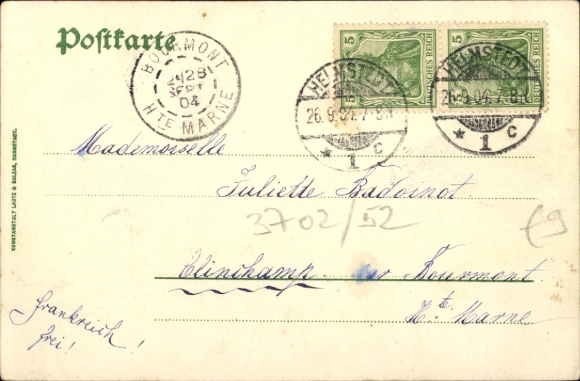 Postkarte
BOURMONT
28
SEPT
04
HTE MARNE
5 DEUTSCHES REICH 5
5 DEUTSCHES REICH 5
HELMSTEDT
26.9.04.7-8V
* 1 c
HELMSTEDT
26.9.04.7-8V
* 1 c
Mademoiselle
Juliette Badoinot
3702/52
€9
Clinchamp par Bourmont
Hte Marne
Frankreich!
frei!
KUNSTANSTALT LAUTZ & BALZAR, DARMSTADT.